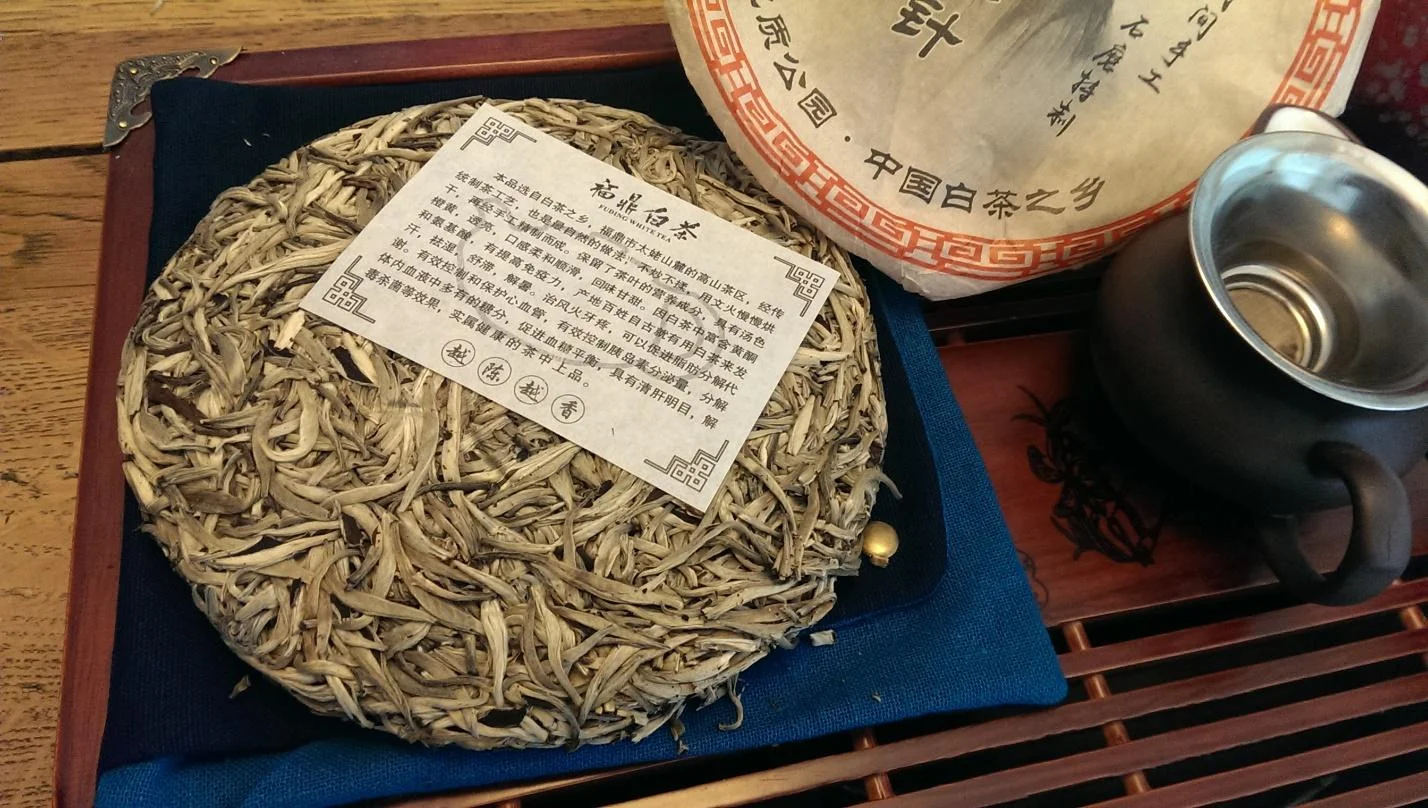 福鼎白茶
FUDING WHITE TEA
本品选自白茶之乡,福鼎市太姥山麓的高山茶区,经传
统制茶工艺,也是最自然的做法:不炒不揉,用文火慢慢烘
干,再经手工精制而成。保留了茶叶的营养成分,具有汤色
橙黄,透亮,口感柔和顺滑,回味甘甜。因白茶中富含黄酮
和氨基酸,有提高免疫力,产地百姓自古就有用白茶来发
汗,祛湿,舒滞,解暑。治风火牙疼,可以促进脂肪分解代
谢。有效控制和保护心血管,有效控制胰岛素分泌量,分解
体内血液中多有的糖分,促进血糖平衡,具有清肝明目,解
毒杀菌等效果,实属健康的茶中上品。
越陈越香
针
间手工
石磨特制
质公园·中国白茶之乡